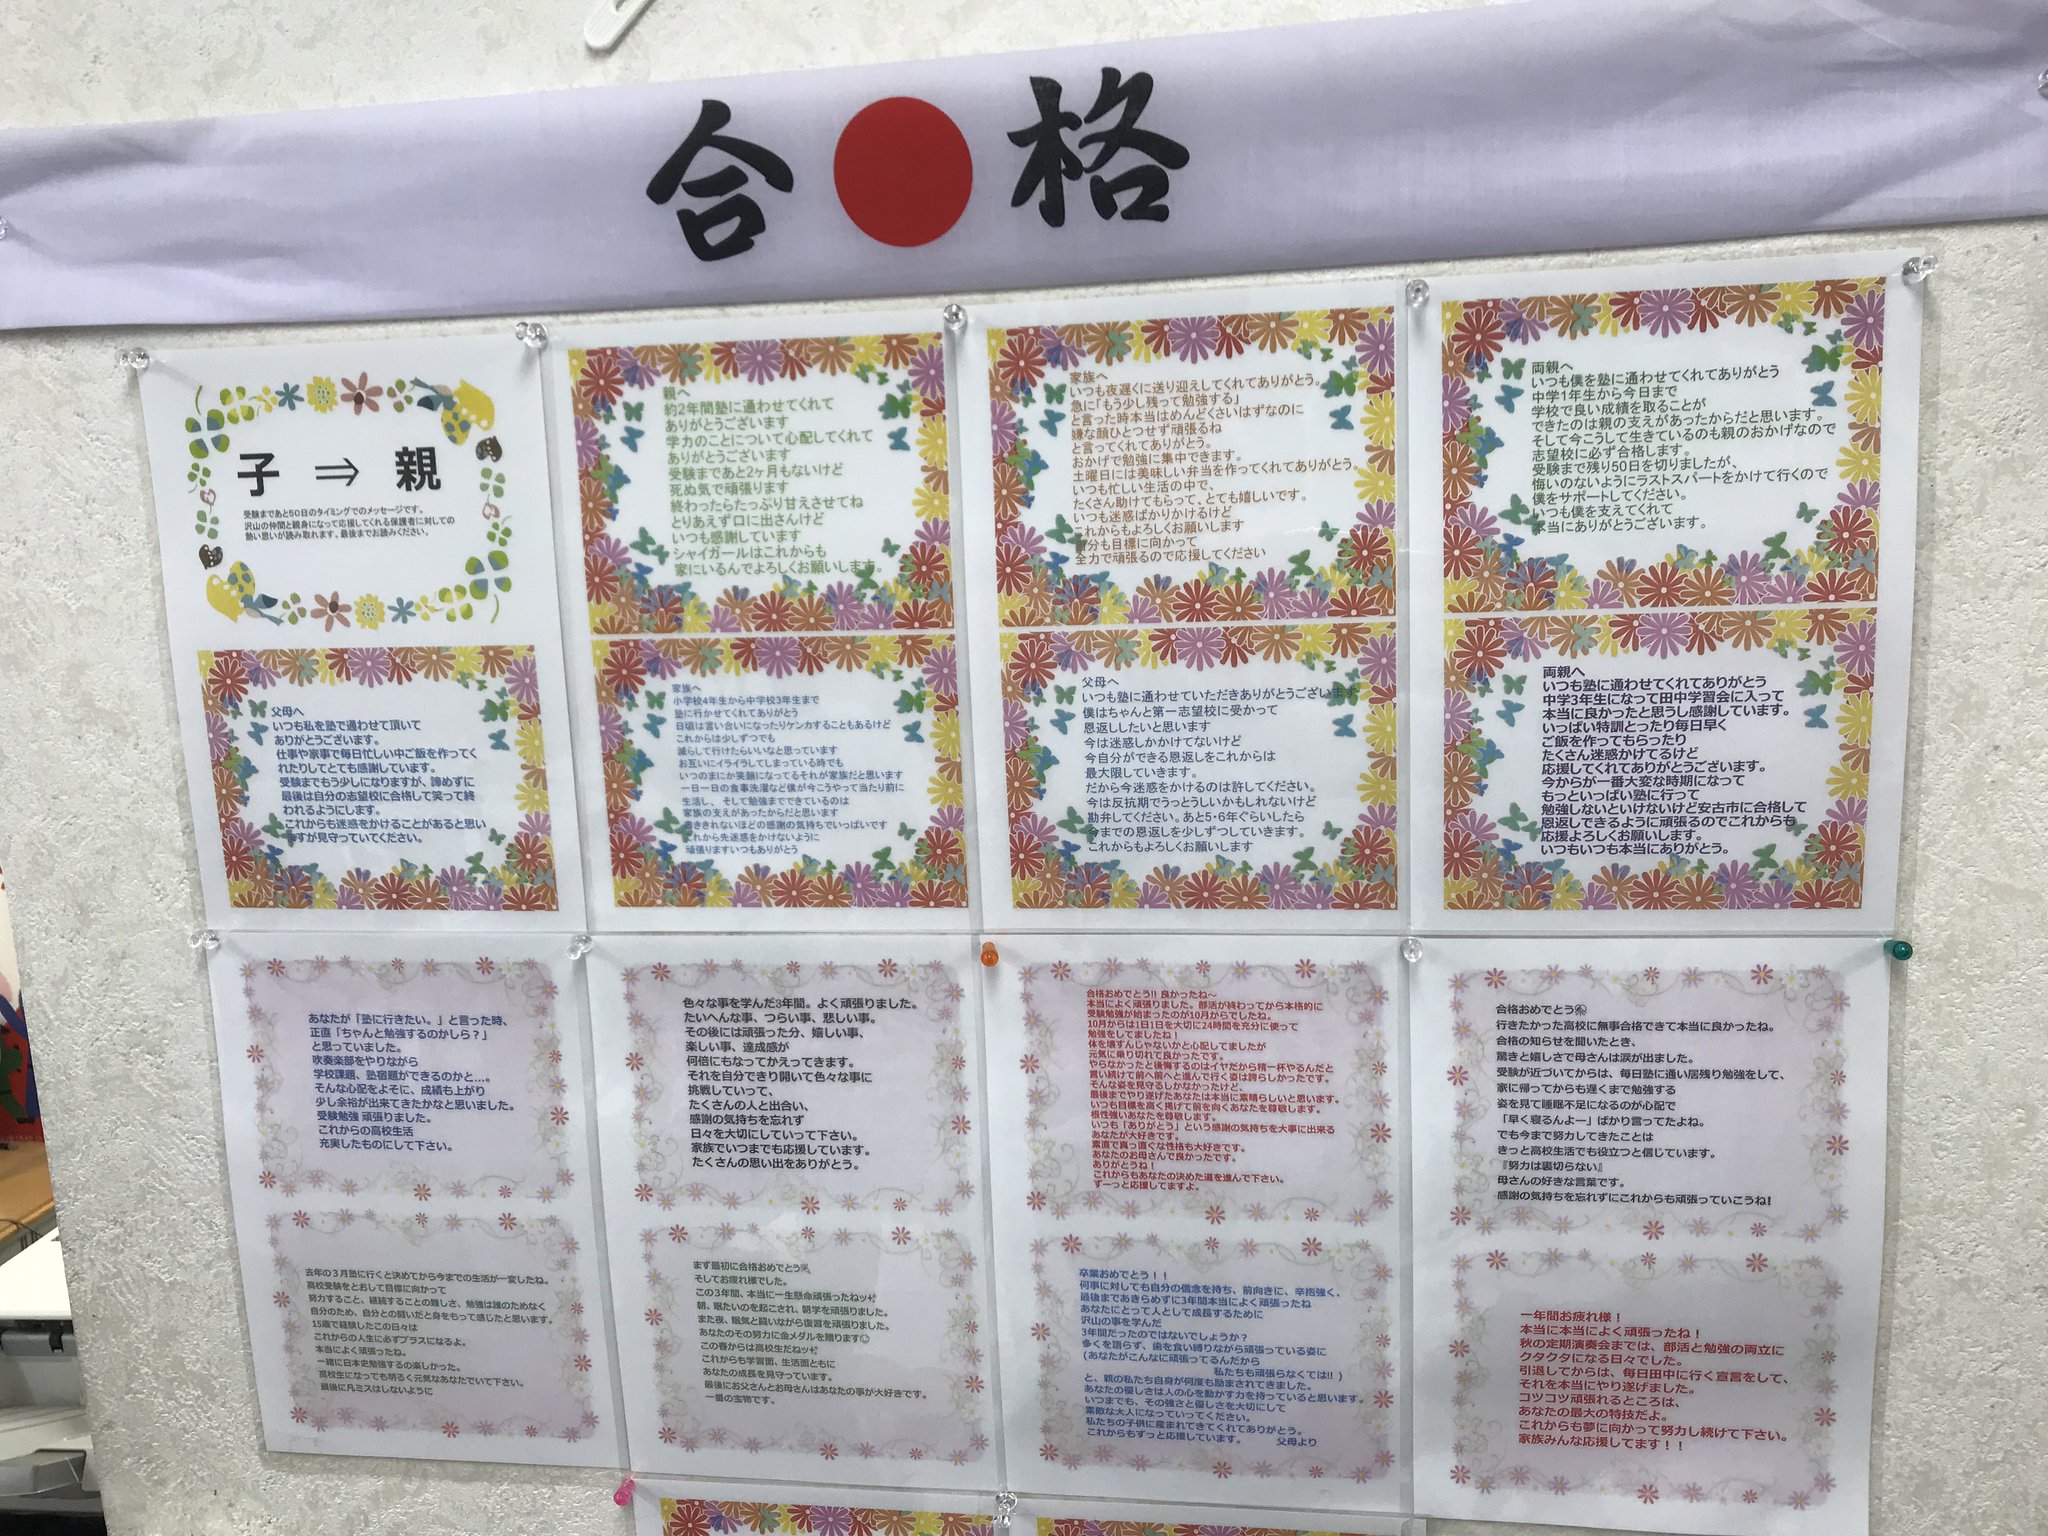 合格
子 ⇒ 親
受験まであと50日のタイミングでのメッセージです。
沢山の仲間と親身になって応援してくれる保護者に対しての
熱い思いが読み取れます。最後までお読みください。
親へ
約2年間塾に通わせてくれて
ありがとうございます
学力のことについて心配してくれて
ありがとうございます
受験まであと2ヶ月もないけど
死ぬ気で頑張ります
終わったらたっぷり甘えさせてね
とりあえず口に出さんけど
いつも感謝しています
シャイガールはこれからも
家にいるんでよろしくお願いします。
家族へ
いつも夜遅くに送り迎えしてくれてありがとう。
急に「もう少し残って勉強する」
と言った時本当はめんどくさいはずなのに
嫌な顔ひとつせず頑張るね
と言ってくれてありがとう。
おかげで勉強に集中できます。
土曜日には美味しい弁当を作ってくれてありがとう。
いつも忙しい生活の中で、
たくさん助けてもらって、とても嬉しいです。
いつも迷惑ばかりかけるけど
これからもよろしくお願いします
自分も目標に向かって
全力で頑張るので応援してください
両親へ
いつも僕を塾に通わせてくれてありがとう
中学1年生から今日まで
学校で良い成績を取ることが
できたのは親の支えがあったからだと思います。
そして今こうして生きているのも親のおかげなので
志望校に必ず合格します。
受験まで残り50日を切りましたが、
悔いのないようにラストスパートをかけて行くので
僕をサポートしてください。
いつも僕を支えてくれて
本当にありがとうございます。
父母へ
いつも私を塾で通わせて頂いて
ありがとうございます。
仕事や家事で毎日忙しい中ご飯を作ってく
れたりしてとても感謝しています。
受験までもう少しになりますが、諦めずに
最後は自分の志望校に合格して笑って終
われるようにします。
これからも迷惑をかけることがあると思い
ますが見守っていてください。
家族へ
小学校4年生から中学校3年生まで
塾に行かせてくれてありがとう
日頃は言い合いになったりケンカすることもあるけど
これからは少しずつでも
減らして行けたらいいなと思っています
お互いにイライラしてしまっている時でも
いつのまにか笑顔になってるそれが家族だと思います
一日一日の食事洗濯など僕が今こうやって当たり前に
生活し、そして勉強までできているのは
家族の支えがあったからだと思います
書ききれないほどの感謝の気持ちでいっぱいです
これから先迷惑をかけないように
頑張りますいつもありがとう
父母へ
いつも塾に通わせていただきありがとうございます
僕はちゃんと第一志望校に受かって
恩返ししたいと思います
今は迷惑しかかけてないけど
今自分ができる恩返しをこれからは
最大限していきます。
だから今迷惑をかけるのは許してください。
今は反抗期でうっとうしいかもしれないけど
勘弁してください。あと5・6年ぐらいしたら
今までの恩返しを少しずつしていきます。
これからもよろしくお願いします
両親へ
いつも塾に通わせてくれてありがとう
中学3年生になって田中学習会に入って
本当に良かったと思うし感謝しています。
いっぱい特訓とったり毎日早く
ご飯を作ってもらったり
たくさん迷惑かけてるけど
応援してくれてありがとうございます。
今からが一番大変な時期になって
もっといっぱい塾に行って
勉強しないといけないけど安古市に合格して
恩返しできるように頑張るのでこれからも
応援よろしくお願いします。
いつもいつも本当にありがとう。
あなたが「塾に行きたい。」と言った時、
正直「ちゃんと勉強するのかしら？」
と思っていました。
吹奏楽部をやりながら
学校課題、塾宿題ができるのかと…。
そんな心配をよそに、成績も上がり
少し余裕が出来てきたかなと思いました。
受験勉強 頑張りました。
これからの高校生活
充実したものにして下さい。
色々な事を学んだ3年間。よく頑張りました。
たいへんな事、つらい事、悲しい事。
その後には頑張った分、嬉しい事、
楽しい事、達成感が
何倍にもなってかえってきます。
それを自分できり開いて色々な事に
挑戦していって、
たくさんの人と出合い、
感謝の気持ちを忘れず
日々を大切にしていって下さい。
家族でいつまでも応援しています。
たくさんの思い出をありがとう。
合格おめでとう!! 良かったね～
本当によく頑張りました。部活が終わってから本格的に
受験勉強が始まったのが10月からでしたね。
10月からは1日1日を大切に24時間を充分に使って
勉強をしてましたね！
体を壊すんじゃないかと心配してましたが
元気に乗り切れて良かったです。
やらなかったと後悔するのはイヤだから精一杯やるんだと
言い続けて前へ前へと進んで行く姿は誇らしかったです。
そんな姿を見守るしかなかったけど、
最後までやり遂げたあなたは本当に素晴らしいと思います。
いつも目標を高く掲げて前を向くあなたを尊敬します。
根性強いあなたを尊敬します。
いつも「ありがとう」という感謝の気持ちを大事に出来る
あなたが大好きです。
素直で真っ直ぐな性格も大好きです。
あなたのお母さんで良かったです。
ありがとうね！
これからもあなたの決めた道を進んで下さい。
ずーっと応援してますよ。
合格おめでとう
行きたかった高校に無事合格できて本当に良かったね。
合格の知らせを聞いたとき、
驚きと嬉しさで母さんは涙が出ました。
受験が近づいてからは、毎日塾に通い居残り勉強をして、
家に帰ってからも遅くまで勉強する
姿を見て睡眠不足になるのが心配で
「早く寝るんよー」ばかり言ってたよね。
でも今まで努力してきたことは
きっと高校生活でも役立つと信じています。
『努力は裏切らない』
母さんの好きな言葉です。
感謝の気持ちを忘れずにこれからも頑張っていこうね!
去年の３月塾に行くと決めてから今までの生活が一変したね。
高校受験をとおして目標に向かって
努力すること、継続することの難しさ、勉強は誰のためなく
自分のため、自分との闘いだと身をもって感じたと思います。
15歳で経験したこの日々は
これからの人生に必ずプラスになるよ。
本当によく頑張ったね。
一緒に日本史勉強するの楽しかった。
高校生になっても明るく元気なあなたでいて下さい。
最後に凡ミスはしないように
まず最初に合格おめでとう
そしてお疲れ様でした。
この３年間、本当に一生懸命頑張ったねッ
朝、眠たいのを起こされ、朝学を頑張りました。
また夜、眠気と闘いながら復習を頑張りました。
あなたのその努力に金メダルを贈ります☺
この春からは高校生だねッ
これからも学習面、生活面ともに
あなたの成長を見守っています。
最後にお父さんとお母さんはあなたの事が大好きです。
一番の宝物です。
卒業おめでとう！！
何事に対しても自分の信念を持ち、前向きに、辛抱強く、
最後まであきらめずに3年間本当によく頑張ったね
あなたにとって人として成長するために
沢山の事を学んだ
3年間だったのではないでしょうか？
多くを語らず、歯を食い縛りながら頑張っている姿に
(あなたがこんなに頑張ってるんだから
私たちも頑張らなくては!! )
と、親の私たち自身が何度も励まされてきました。
あなたの優しさは人の心を動かす力を持っていると思います。
いつまでも、その強さと優しさを大切にして
素敵な大人になっていってください。
私たちの子供に産まれてきてくれてありがとう。
これからもずっと応援しています。 父母より
一年間お疲れ様！
本当に本当によく頑張ったね！
秋の定期演奏会までは、部活と勉強の両立に
クタクタになる日々でした。
引退してからは、毎日田中に行く宣言をして、
それを本当にやり遂げました。
コツコツ頑張れるところは、
あなたの最大の特技だよ。
これからも夢に向かって努力し続けて下さい。
家族みんな応援してます！！